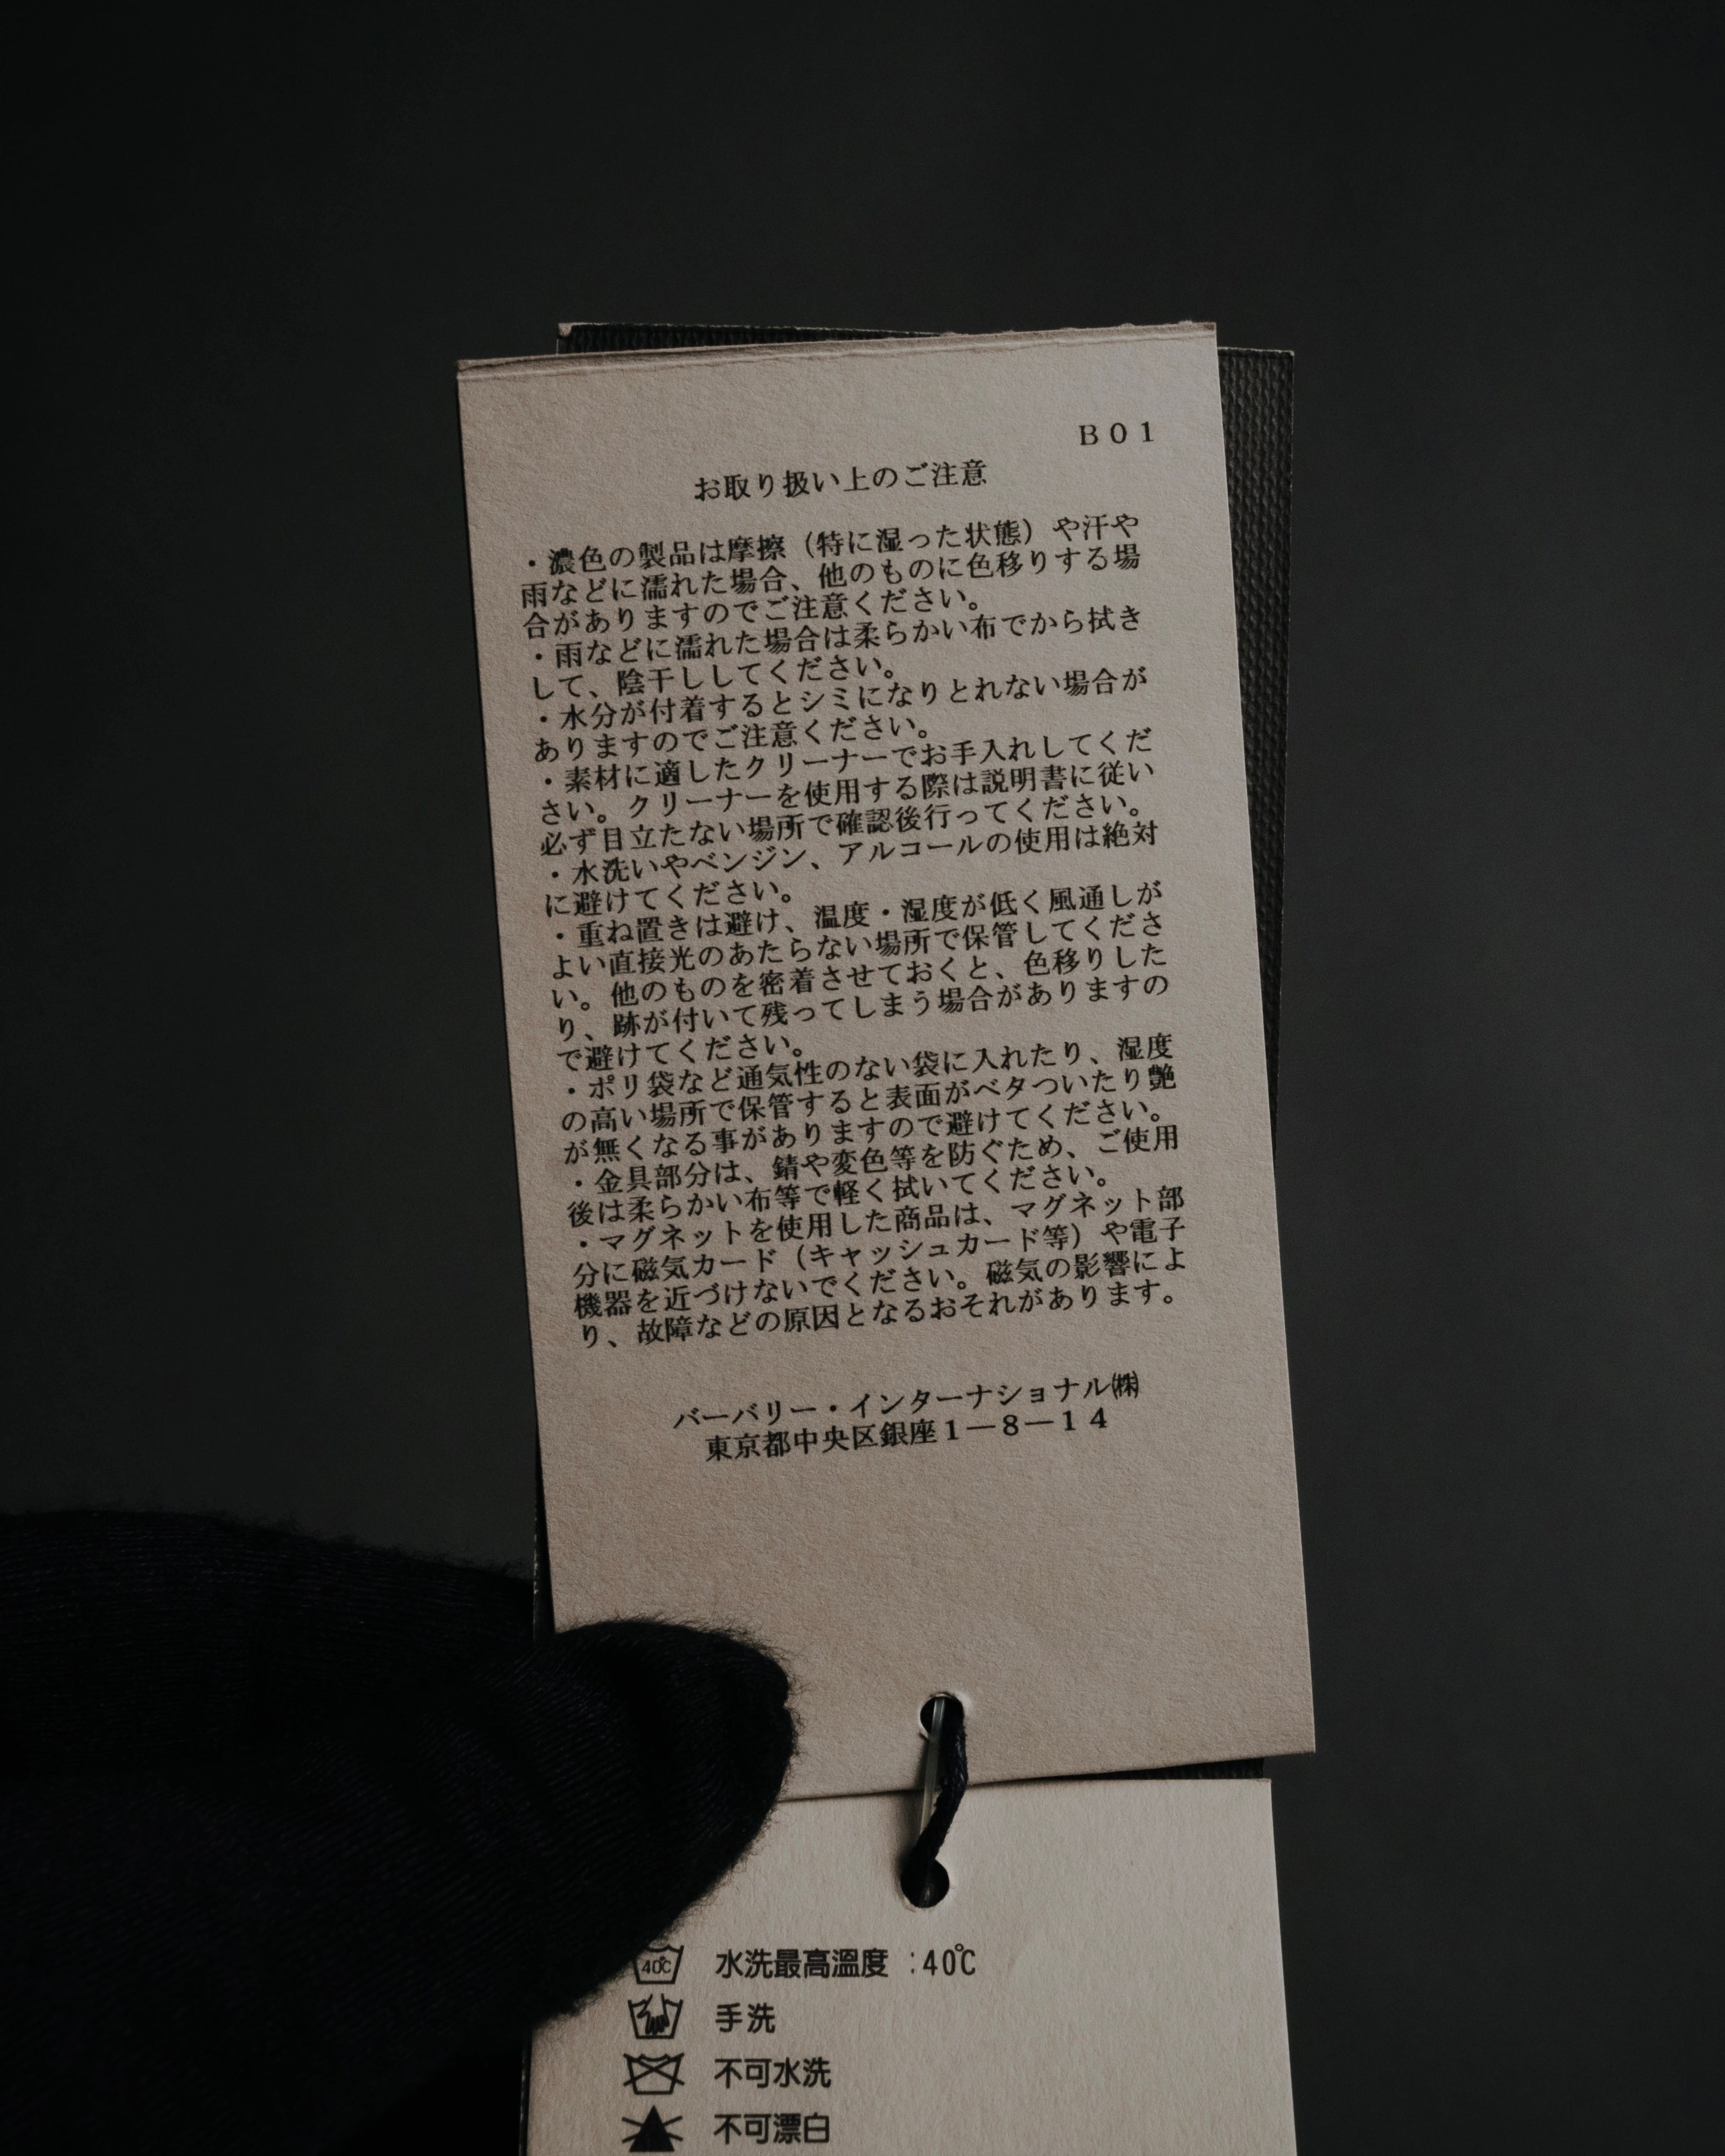 B01
お取り扱い上のご注意
・濃色の製品は摩擦（特に湿った状態）や汗や
雨などに濡れた場合、他のものに色移りする場
合がありますのでご注意ください。
・雨などに濡れた場合は柔らかい布でから拭き
して、陰干ししてください。
・水分が付着するとシミになりとれない場合が
ありますのでご注意ください。
・素材に適したクリーナーでお手入れしてくだ
さい。クリーナーを使用する際は説明書に従い
必ず目立たない場所で確認後行ってください。
・水洗いやベンジン、アルコールの使用は絶対
に避けてください。
・重ね置きは避け、温度・湿度が低く風通しが
よい直接光のあたらない場所で保管してくださ
い。他のものを密着させておくと、色移りした
り、跡が付いて残ってしまう場合がありますの
で避けてください。
・ポリ袋など通気性のない袋に入れたり、湿度
の高い場所で保管すると表面がベタついたり艶
が無くなる事がありますので避けてください。
・金具部分は、錆や変色等を防ぐため、ご使用
後は柔らかい布等で軽く拭いてください。
・マグネットを使用した商品は、マグネット部
分に磁気カード（キャッシュカード等）や電子
機器を近づけないでください。磁気の影響によ
り、故障などの原因となるおそれがあります。
バーバリー・インターナショナル㈱
東京都中央区銀座1－8－14
40℃ 水洗最高溫度 :40℃
手洗
不可水洗
不可漂白